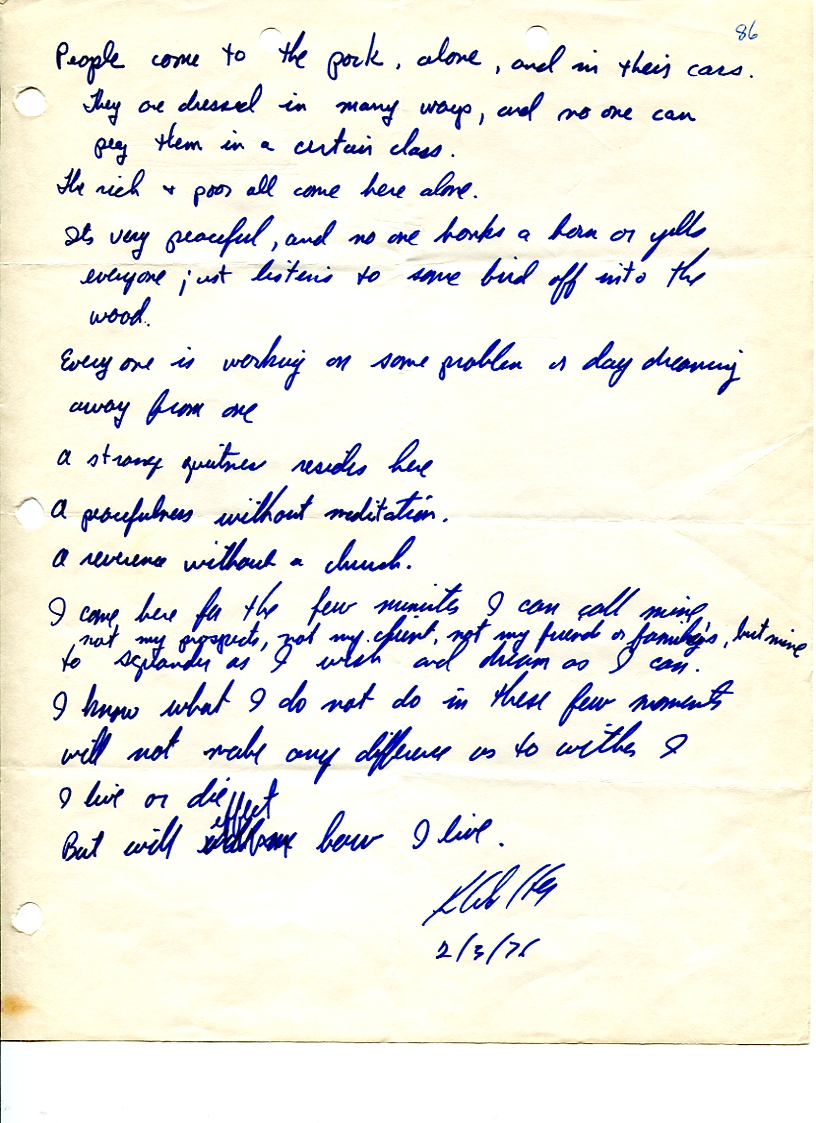 86
People come to the park, alone, and in their cars.
They are dressed in many ways, and no one can
peg them in a certain class.
The rich + poor all come here alone.
Its very peaceful, and no one honks a horn or yells
everyone just listens to some bird off into the
wood.
Every one is working on some problem or day dreaming
away from one
A strong quitness resides here
A peacefulness without meditation.
A reverence without a church.
I come here for the few minutes I can call mine
not my prospects, not my client, not my friend or family's, but mine
to sqlander as I wish and dream as I can.
I know what I do not do in these few moments
will not make any difference as to wither I
I live or die
effect
But will how I live.
2/3/76